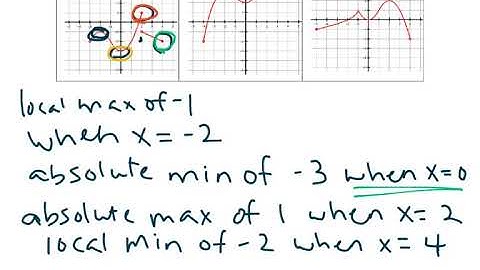 local max of -1
when x = -2
absolute min of -3 when x=0
absolute max of 1 when x= 2
local min of -2 when x = 4